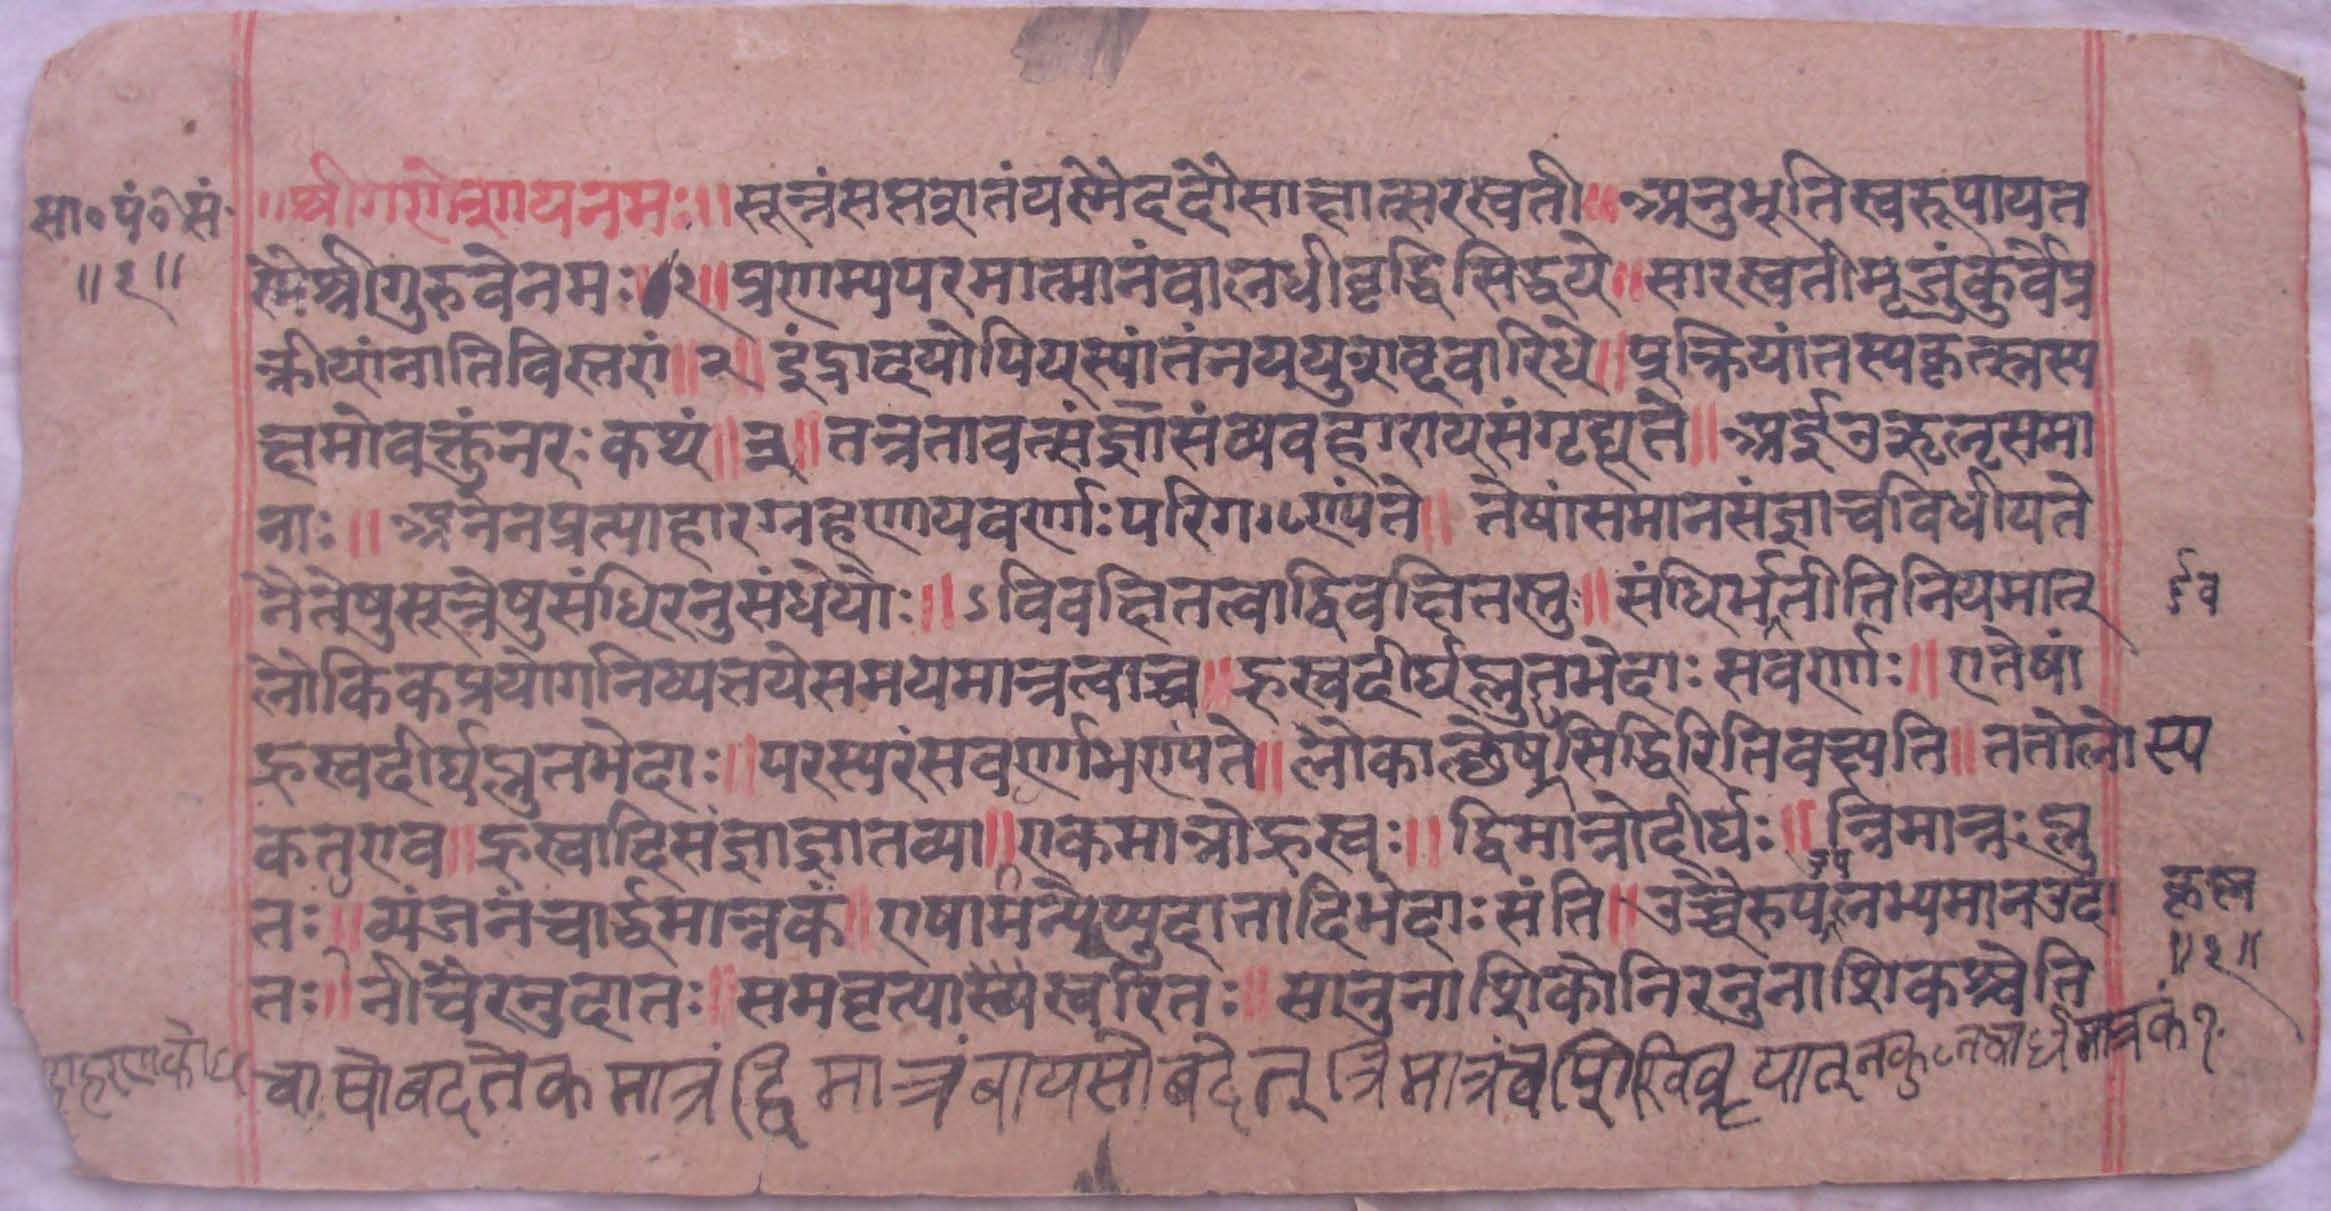 सा॰ पं॰ सं॰
॥१॥
॥श्रीगणेशायनमः॥ सूत्रंसप्तशतंयस्मैददौसाक्षात्सरस्वती॥अनुभूतिस्वरूपायत
स्मैश्रीगुरुवेनमः॥१॥प्रणम्यपरमात्मानंबालधीवृद्धिसिद्धये॥सारस्वतीमृजुंकुर्वेप्र
क्रीयांनातिविस्तरां॥२॥इंद्रादयोपियस्यांतंनययुशब्दवारिधे॥प्रक्रियांतस्यकृत्स्नस्य
क्षमोवक्तुंनरःकथं॥३॥तत्रतावत्संज्ञासंव्यवहारायसंगृह्यते॥अइउऋऌसमा
नाः॥अनेनप्रत्याहारग्रहणायवर्णाःपरिगण्यंते॥तेषांसमानसंज्ञाचविधीयते
नैतेषुसूत्रेषुसंधिरनुसंधेयोः॥ऽविवक्षितत्वाद्विवक्षितस्तु॥संधिर्भतीतिनियमात्
र्इव
लौकिकप्रयोगनिष्पत्तयेसमयमात्रत्वाच्च॥ह्रस्वदीर्घप्लुतभेदाःसवर्णाः॥एतेषां
ह्रस्वदीर्घप्लुतभेदाः॥परस्परंसवर्णाभण्यंते॥लोकाच्छेषसिद्धिरितिवक्ष्यति॥ततोलो
स्य
कतएव॥ह्रस्वादिसंज्ञाज्ञातव्या॥एकमात्रोह्रस्वः॥द्विमात्रोदीर्घः॥त्रिमात्रःप्लु
तः॥व्यंजनंचार्द्धमात्रकं॥एषामन्येप्युदात्तादिभेदाःसंति॥उच्चैरुपलभ्यमानउदा
॥१॥
तः॥नीचैरनुदातः॥समवृत्यास्वरितः॥सानुनाशिकोनिरनुनाशिकश्चेति
चाषोबदतैकमात्रं द्विमात्रंबायसोबदेत् त्रिमात्रं